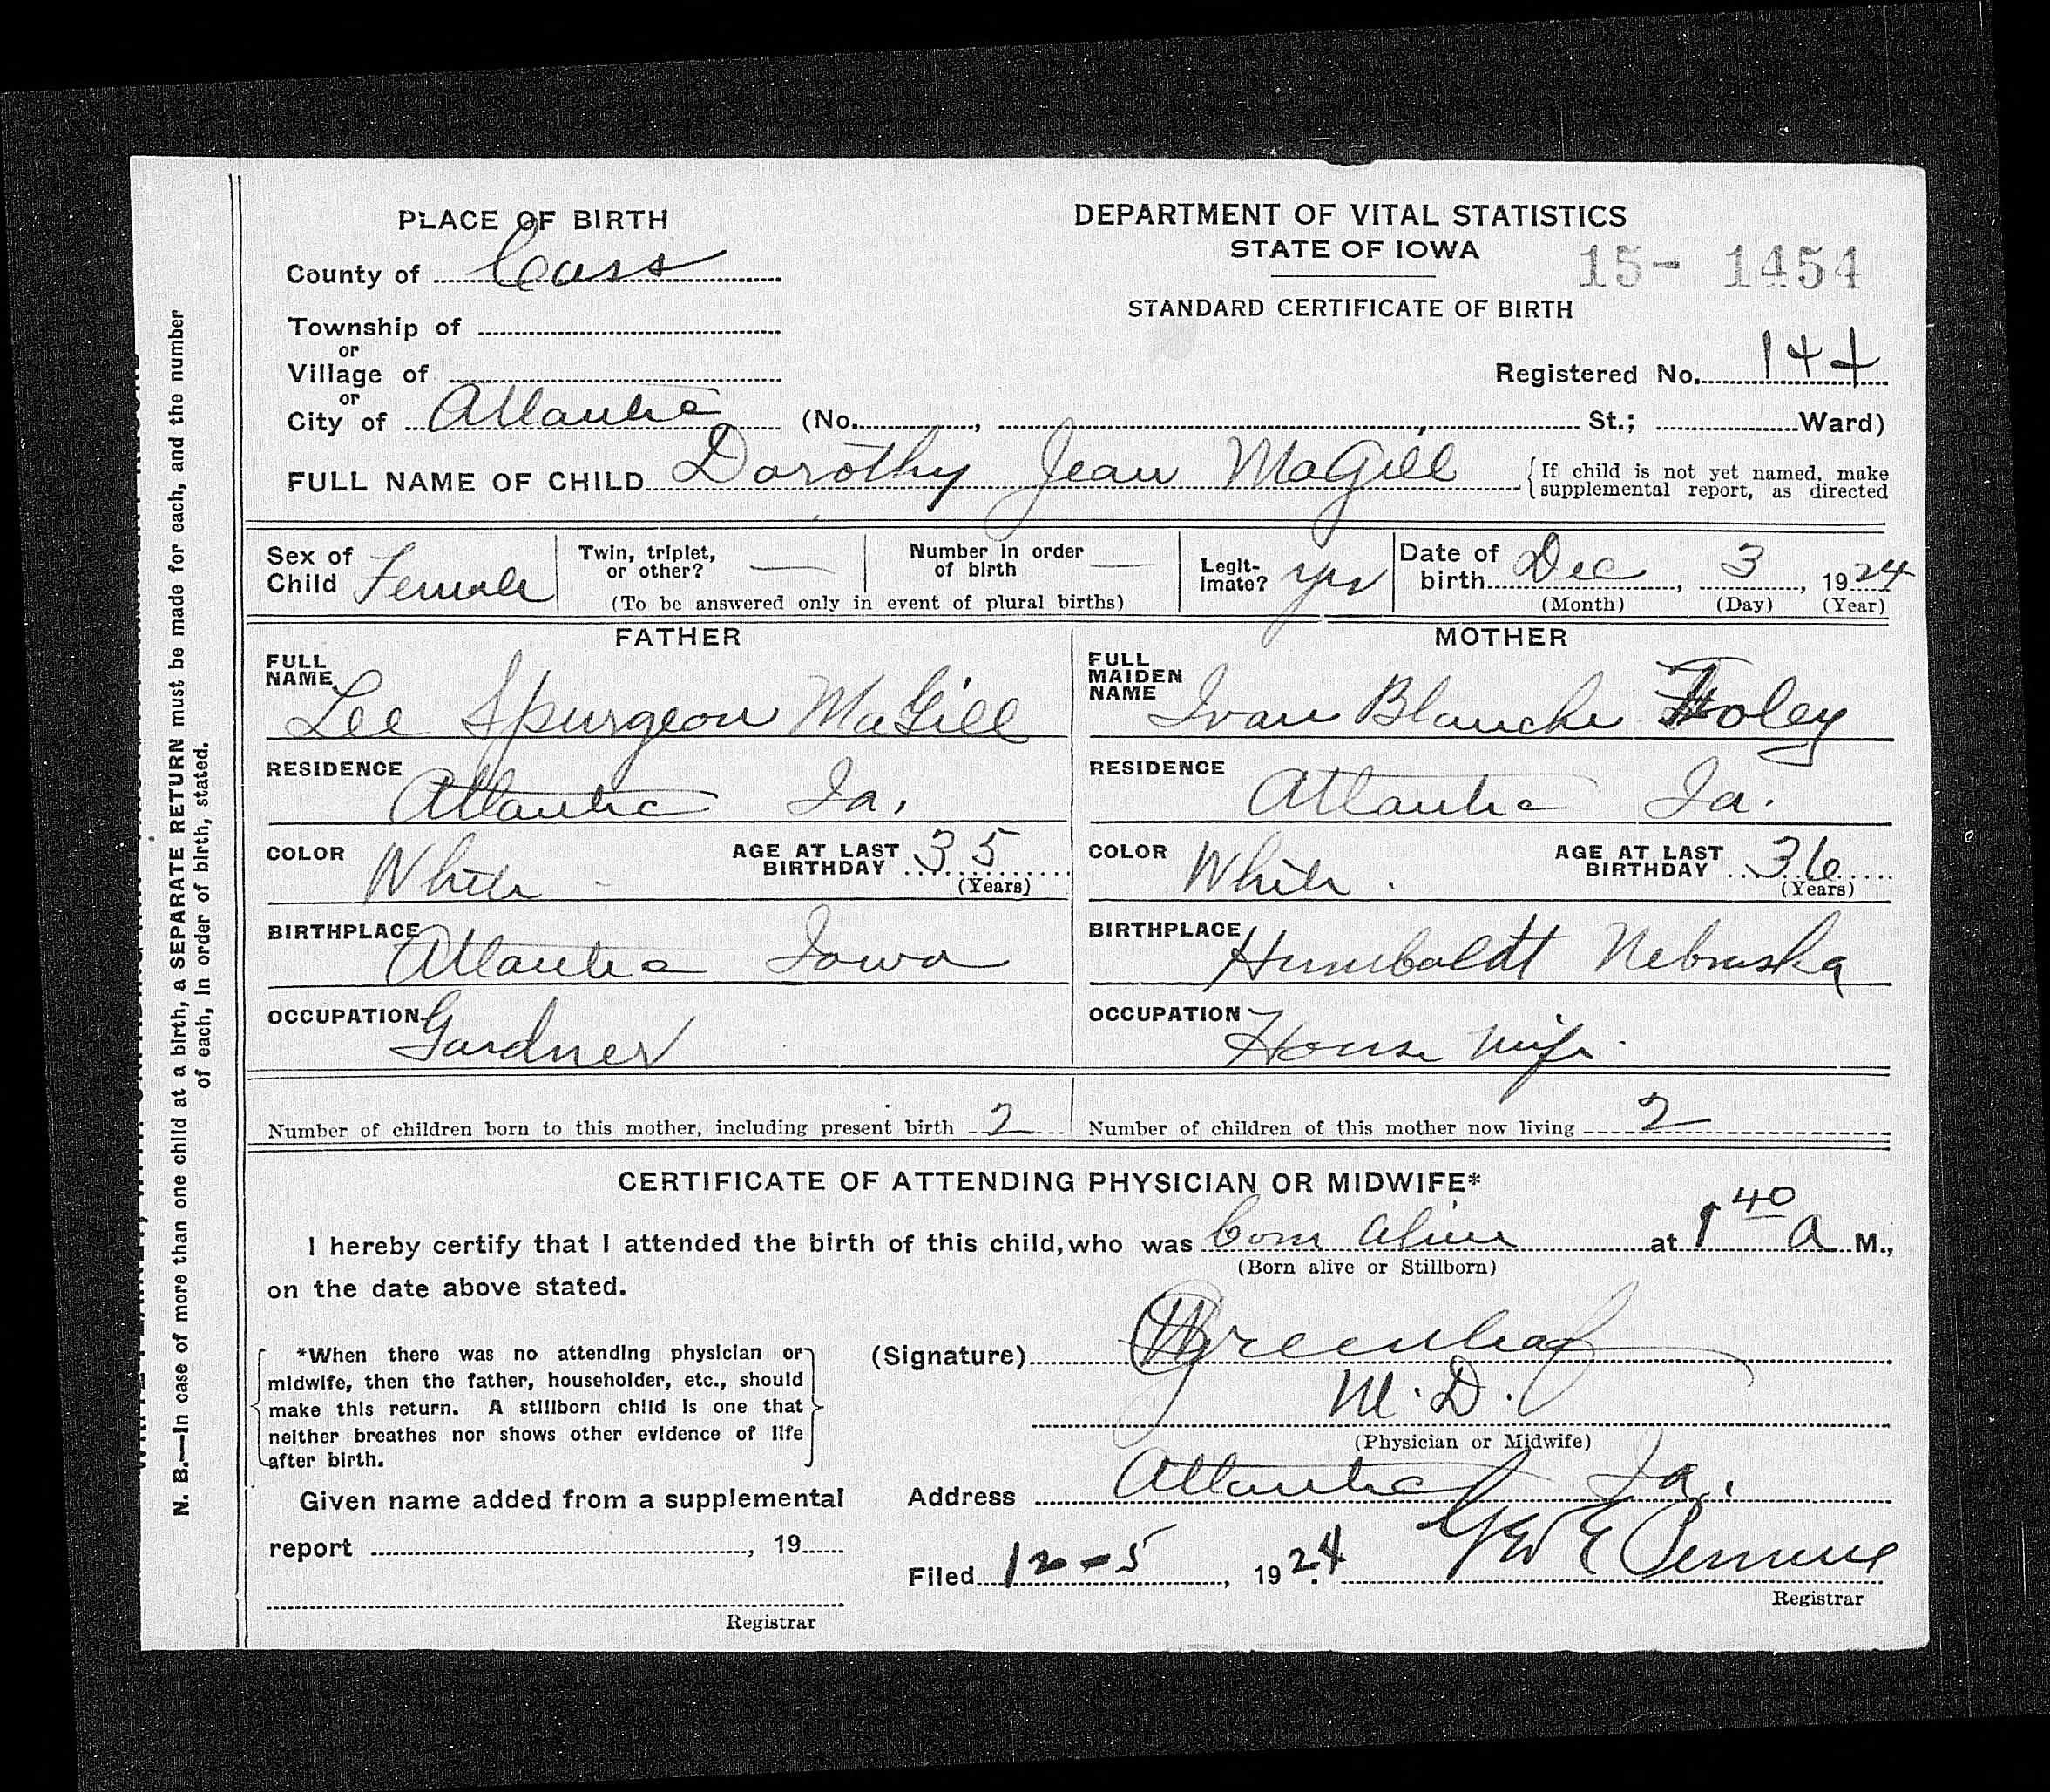 PLACE OF BIRTH
County of Cass
Township of
or
Village of
or
City of Atlantic (No. , St.; Ward)
DEPARTMENT OF VITAL STATISTICS
STATE OF IOWA
15- 1454
STANDARD CERTIFICATE OF BIRTH
Registered No. 144
FULL NAME OF CHILD Dorothy Jean MaGill
If child is not yet named, make
supplemental report, as directed
Sex of
Child Female
Twin, triplet,
or other? —
Number in order
of birth —
(To be answered only in event of plural births)
Legit-
imate? yes
Date of
birth Dec , 3 , 1924
(Month) (Day) (Year)
FATHER
FULL
NAME
Lee Spurgeon MaGill
RESIDENCE
Atlantic Ia.
COLOR White
AGE AT LAST
BIRTHDAY 35
(Years)
BIRTHPLACE
Atlantic Iowa
OCCUPATION
Gardner
MOTHER
FULL
MAIDEN
NAME
Ivan Blanche Foley
RESIDENCE
Atlantic Ia.
COLOR White.
AGE AT LAST
BIRTHDAY 36
(Years)
BIRTHPLACE
Humboldt Nebraska
OCCUPATION
House wife.
Number of children born to this mother, including present birth 2
Number of children of this mother now living 2
CERTIFICATE OF ATTENDING PHYSICIAN OR MIDWIFE*
I hereby certify that I attended the birth of this child, who was born alive at 1 40 A M.,
(Born alive or Stillborn)
on the date above stated.
*When there was no attending physician or
midwife, then the father, householder, etc., should
make this return. A stillborn child is one that
neither breathes nor shows other evidence of life
after birth.
(Signature) Greenleaf
M.D.
(Physician or Midwife)
Given name added from a supplemental
report , 19
Registrar
Address Atlantic Ia.
Filed 12-5 , 1924
Registrar
N. B.—In case of more than one child at a birth, a SEPARATE RETURN must be made for each, and the number
of each, in order of birth, stated.